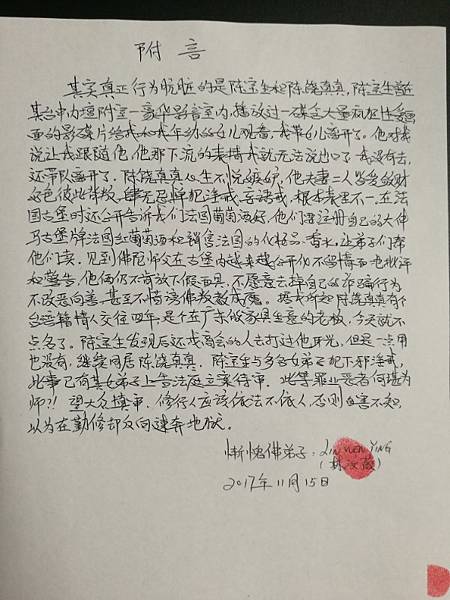 附言
其实真正行为肮脏的是陈宝生和陈饶真真,陈宝生曾在
其台中内坛附室一豪华影音室内,播放过一碟含大量疯狂性爱画
面的影碟片给我和我年幼的女儿观看,我带女儿离开了。他对我
说让我跟随他,他那下流的表情我就无法说出口了,我没有去,
还带队离开了。陈饶真真心生不完嫉妒,他夫妻二人贪爱敛财
好色彼此,肆无忌惮犯淫戒、妄语戒,根本表里不一,在法
国古堡时还公开告诉我们法国葡萄酒好,他们要注册自己的大伸
马古堡牌法国红葡萄酒和销售法国的化妆品、香水,让弟子们帮
他们卖,见到佛陀师父在古堡内越来越公开化不留情面地批评
和警告,他俩仍不肯放下假面具,不愿意去掉自己的诈骗行为
不改恶向善,甚至不惜谤佛。据我所知陈饶真真有个
台湾籍情人交往四年,是个在广东做家俱生意的老板,今天就不
点名了。陈宝生发现后还找商会的人去打过他耳光,但是一点用
也没有,继续同居陈饶真真。陈宝生与多名女弟子犯下邪淫戒,
此事已有某女弟子上告法庭立案待审,此等罪业恶者何堪为
师?!望大众慎审,修行人应该依法不依人,否则自害不知,
以为在勤修却反向速奔地狱。
惭愧佛弟子:LIN WEN YING
(林汶蓥)
2017年11月15日